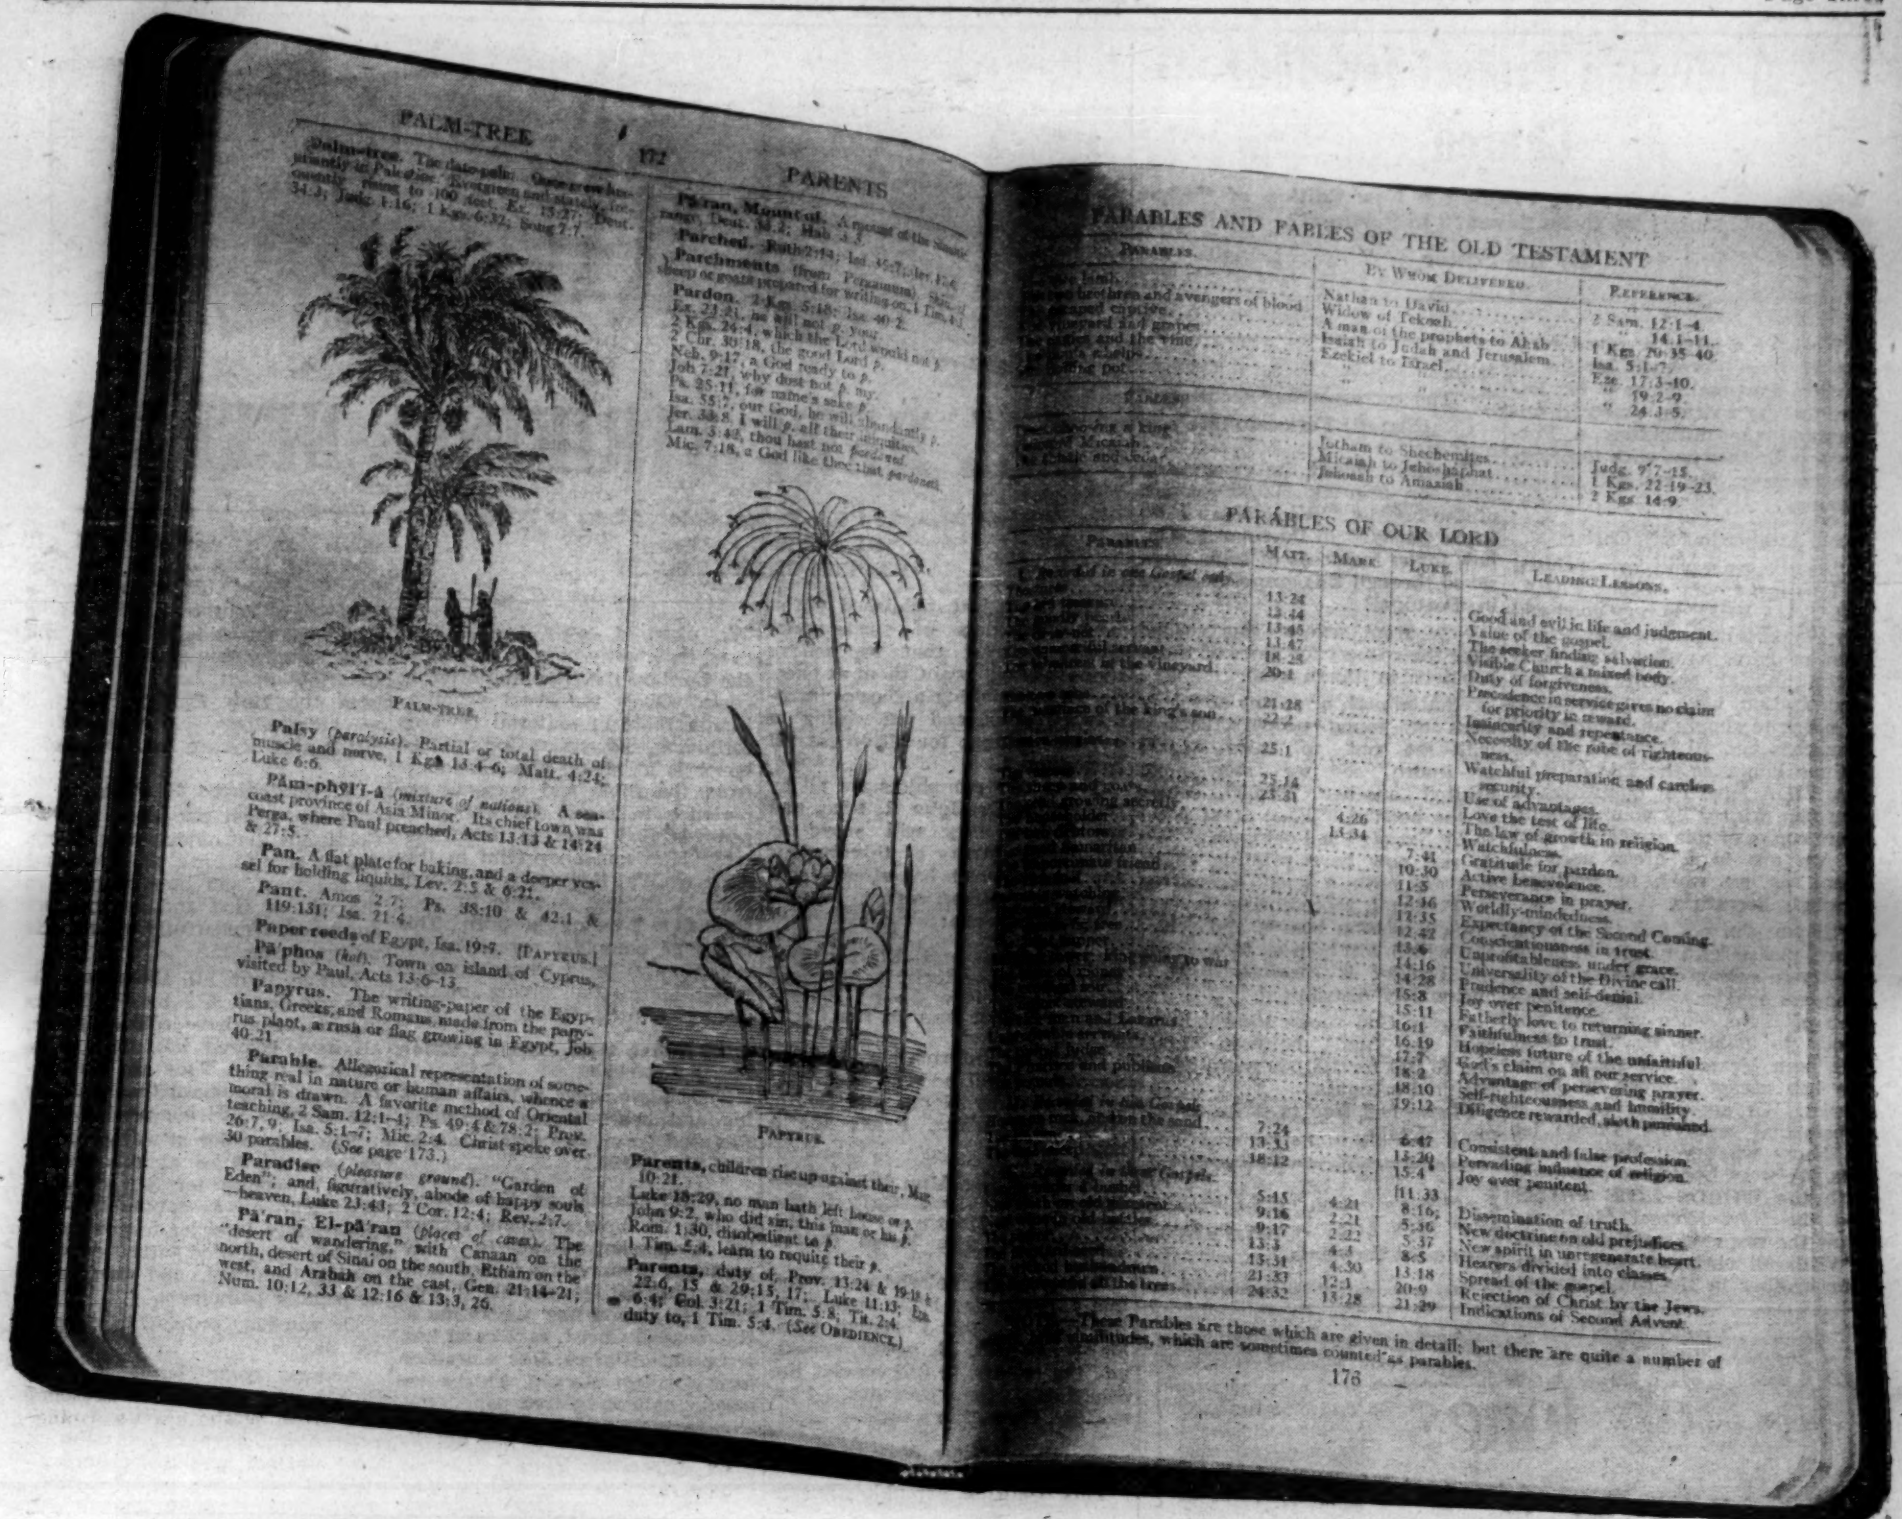 PALM-TREE
172
PARENTS
Palm-tree. The date-palm. Once grew lux-
uriantly in Palestine. Evergreen and stately, fre-
quently rising to 100 feet, Ex. 15:27; Deut.
34:3; Judg. 1:16; 1 Kgs. 6:32; Song 7:7.
PALM-TREE.
Palsy (paralysis). Partial or total death of
muscle and nerve, 1 Kgs 13:4-6; Matt. 4:24;
Luke 6:6.
Păm-phy̆l'ĭ-ȧ (mixture of nations). A sea-
coast province of Asia Minor. Its chief town was
Perga, where Paul preached, Acts 13:13 & 14:24
& 27:5.
Pan. A flat plate for baking, and a deeper ves-
sel for holding liquids, Lev. 2:5 & 6:21.
Pant. Amos 2:7; Ps. 38:10 & 42:1 &
119:131; Isa. 21:4.
Paper reeds of Egypt, Isa. 19:7. [PAPYRUS.]
Pā'phos (hot). Town on island of Cyprus,
visited by Paul, Acts 13:6-13.
Papyrus. The writing-paper of the Egyp-
tians, Greeks, and Romans, made from the papy-
rus plant, a rush or flag growing in Egypt, Job
40:21.
Parable. Allegorical representation of some-
thing real in nature or human affairs, whence a
moral is drawn. A favorite method of Oriental
teaching, 2 Sam. 12:1-4; Ps. 49:4 & 78:2; Prov.
26:7, 9; Isa. 5:1-7; Mic. 2:4. Christ spoke over
30 parables. (See page 173.)
Paradise (pleasure ground). "Garden of
Eden"; and, figuratively, abode of happy souls
—heaven, Luke 23:43; 2 Cor. 12:4; Rev. 2:7.
Pā'ran, El-pā'ran (places of caves). The
"desert of wandering," with Canaan on the
north, desert of Sinai on the south, Etham on the
west, and Arabah on the east, Gen. 21:14-21;
Num. 10:12, 33 & 12:16 & 13:3, 26.
Pā'ran, Mount of. A mount of the Sinaitic
range, Deut. 33:2; Hab. 3:3.
Parched. Ruth 2:14; Isa. 35:7; Jer. 17:6.
Parchments (from Pergamum). Skins of
sheep or goats prepared for writing on,
Pardon. 2 Kgs 5:18; Isa. 40:2.
Ex. 23:21, he will not p. your
2 Kgs. 24:4, which the Lord would not p.
2 Chr. 30:18, the good Lord p.
Neh. 9:17, a God ready to p.
Job 7:21, why dost not p. my
Ps. 25:11, for name's sake p.
Isa. 55:7, our God, he will abundantly p.
Jer. 33:8, I will p. all their iniquities.
Lam. 3:42, thou hast not pardoned.
Mic. 7:18, a God like thee that pardoneth
PAPYRUS.
Parents, children rise up against their,
10:21.
Luke 18:29, no man hath left house or p.
John 9:2, who did sin, this man or his p.
Rom. 1:30, disobedient to p.
1 Tim. 5:4, learn to requite their p.
Parents, duty of, Prov. 13:24 & 19:18 &
22:6, 15 & 29:15, 17; Luke 11:13; Eph.
6:4; Col. 3:21; 1 Tim. 5:8; Tit. 2:4.
duty to, 1 Tim. 5:4. (See OBEDIENCE.)
PARABLES AND FABLES OF THE OLD TESTAMENT
PARABLES. BY WHOM DELIVERED. REFERENCE.
lamb Nathan to David 2 Sam. 12:1-4.
brethren and avengers of blood Widow of Tekoah " 14:1-11.
escaped captive A man of the prophets to Ahab 1 Kgs. 20:35-40.
vineyard and grapes Isaiah to Judah and Jerusalem Isa. 5:1-7.
and the vine Ezekiel to Israel Eze. 17:3-10.
whelps " " " 19:2-9.
pot " " " 24:3-5.
FABLES
a king Jotham to Shechemites Judg. 9:7-15.
Micaiah Micaiah to Jehoshaphat 1 Kgs. 22:19-23.
and cedar Jehoash to Amaziah 2 Kgs 14:9.
PARABLES OF OUR LORD
PARABLES MATT. MARK. LUKE. LEADING LESSONS.
Recorded in one Gospel only.
13:24 Good and evil in life and judgment.
13:44 Value of the gospel.
13:45 The seeker finding salvation.
13:47 Visible Church a mixed body.
servant 18:23 Duty of forgiveness.
in the vineyard 20:1 Precedence in service gives no claim
for priority in reward.
21:28 Insincerity and repentance.
of the king's son 22:2 Necessity of the robe of righteous-
ness.
25:1 Watchful preparation and careless
security.
25:14 Use of advantages.
25:31 Love the test of life.
growing secretly 4:26 The law of growth in religion.
13:34 Watchfulness.
7:41 Gratitude for pardon.
10:30 Active benevolence.
friend 11:5 Perseverance in prayer.
12:16 Worldly-mindedness.
12:35 Expectancy of the Second Coming.
12:42 Conscientiousness in trust.
13:6 Unprofitableness under grace.
14:16 Universality of the Divine call.
to war 14:28 Prudence and self-denial.
15:8 Joy over penitence.
15:11 Fatherly love to returning sinner.
16:1 Faithfulness to trust.
and Lazarus 16:19 Hopeless future of the unfaithful.
17:7 God's claim on all our service.
18:2 Advantage of persevering prayer.
and publican 18:10 Self-righteousness and humility.
19:12 Diligence rewarded, sloth punished.
in two Gospels
on the sand 7:24 6:47 Consistent and false profession.
13:33 13:20 Pervading influence of religion.
18:12 15:4 Joy over penitent.
in three Gospels.
5:15 4:21 8:16; 11:33 Dissemination of truth.
9:16 2:21 5:36 New doctrine on old prejudices.
9:17 2:22 5:37 New spirit in unregenerate heart.
13:3 4:3 8:5 Hearers divided into classes.
13:31 4:30 13:18 Spread of the gospel.
21:33 12:1 20:9 Rejection of Christ by the Jews.
all the trees 24:32 13:28 21:29 Indications of Second Advent.
These Parables are those which are given in detail; but there are quite a number of
similitudes, which are sometimes counted as parables.